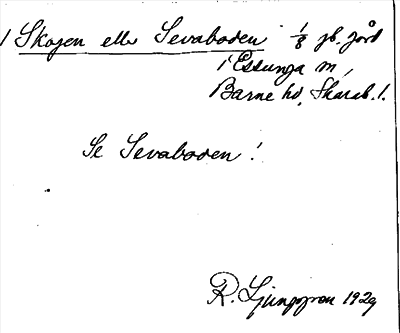 1 Skogen eller Sevaboden 1/8 jb. jord
i Essunga sn,
Barne hd, Skarab. l.
Se Sevaboden!
R. Ljunggren 1929